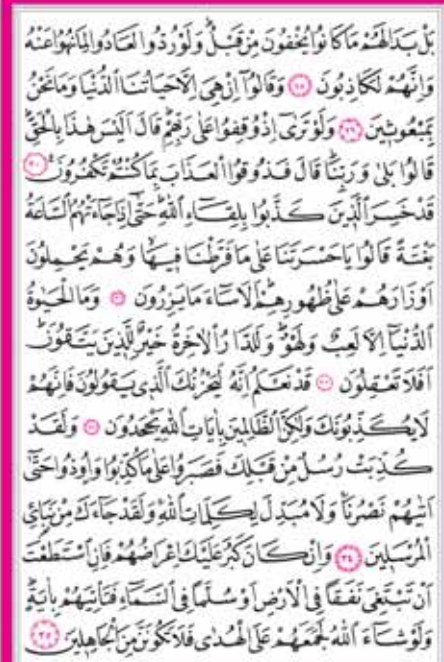 بَلْ بَدَا لَهُمْ مَا كَانُوا يُخْفُونَ مِنْ قَبْلُ وَلَوْ رُدُّوا لَعَادُوا لِمَا نُهُوا عَنْهُ
وَاِنَّهُمْ لَكَاذِبُونَ ﴿٢٨﴾ وَقَالُوا اِنْ هِىَ اِلَّا حَيَاتُنَا الدُّنْيَا وَمَا نَحْنُ
بِمَبْعُوثِينَ ﴿٢٩﴾ وَلَوْ تَرٰٓى اِذْ وُقِفُوا عَلٰى رَبِّهِمْ قَالَ اَلَيْسَ هٰذَا بِالْحَقِّ
قَالُوا بَلٰى وَرَبِّنَا قَالَ فَذُوقُوا الْعَذَابَ بِمَا كُنْتُمْ تَكْفُرُونَ ﴿٣٠﴾
قَدْ خَسِرَ الَّذِينَ كَذَّبُوا بِلِقَٓاءِ اللّٰهِ حَتّٰٓى اِذَا جَٓاءَتْهُمُ السَّاعَةُ
بَغْتَةً قَالُوا يَا حَسْرَتَنَا عَلٰى مَا فَرَّطْنَا فِيهَا وَهُمْ يَحْمِلُونَ
اَوْزَارَهُمْ عَلٰى ظُهُورِهِمْ اَلَا سَٓاءَ مَا يَزِرُونَ ﴿٣١﴾ وَمَا الْحَيٰوةُ
الدُّنْيَٓا اِلَّا لَعِبٌ وَلَهْوٌ وَلَلدَّارُ الْاٰخِرَةُ خَيْرٌ لِلَّذِينَ يَتَّقُونَ
اَفَلَا تَعْقِلُونَ ﴿٣٢﴾ قَدْ نَعْلَمُ اِنَّهُ لَيَحْزُنُكَ الَّذِى يَقُولُونَ فَاِنَّهُمْ
لَا يُكَذِّبُونَكَ وَلٰكِنَّ الظَّالِمِينَ بِاٰيَاتِ اللّٰهِ يَجْحَدُونَ ﴿٣٣﴾ وَلَقَدْ
كُذِّبَتْ رُسُلٌ مِنْ قَبْلِكَ فَصَبَرُوا عَلٰى مَا كُذِّبُوا وَاُوذُوا حَتّٰٓى
اَتٰيهُمْ نَصْرُنَا وَلَا مُبَدِّلَ لِكَلِمَاتِ اللّٰهِ وَلَقَدْ جَٓاءَكَ مِنْ نَبَائِ
الْمُرْسَلِينَ ﴿٣٤﴾ وَاِنْ كَانَ كَبُرَ عَلَيْكَ اِعْرَاضُهُمْ فَاِنِ اسْتَطَعْتَ
اَنْ تَبْتَغِىَ نَفَقًا فِى الْاَرْضِ اَوْ سُلَّمًا فِى السَّمَٓاءِ فَتَأْتِيَهُمْ بِاٰيَةٍ
وَلَوْ شَٓاءَ اللّٰهُ لَجَمَعَهُمْ عَلَى الْهُدٰى فَلَا تَكُونَنَّ مِنَ الْجَاهِلِينَ ﴿٣٥﴾